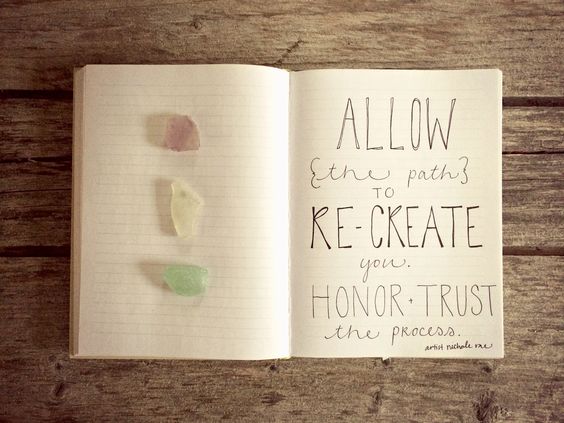 ALLOW
{the path}
TO
RE-CREATE
you.
HONOR + TRUST
the process.
artist rachale rae